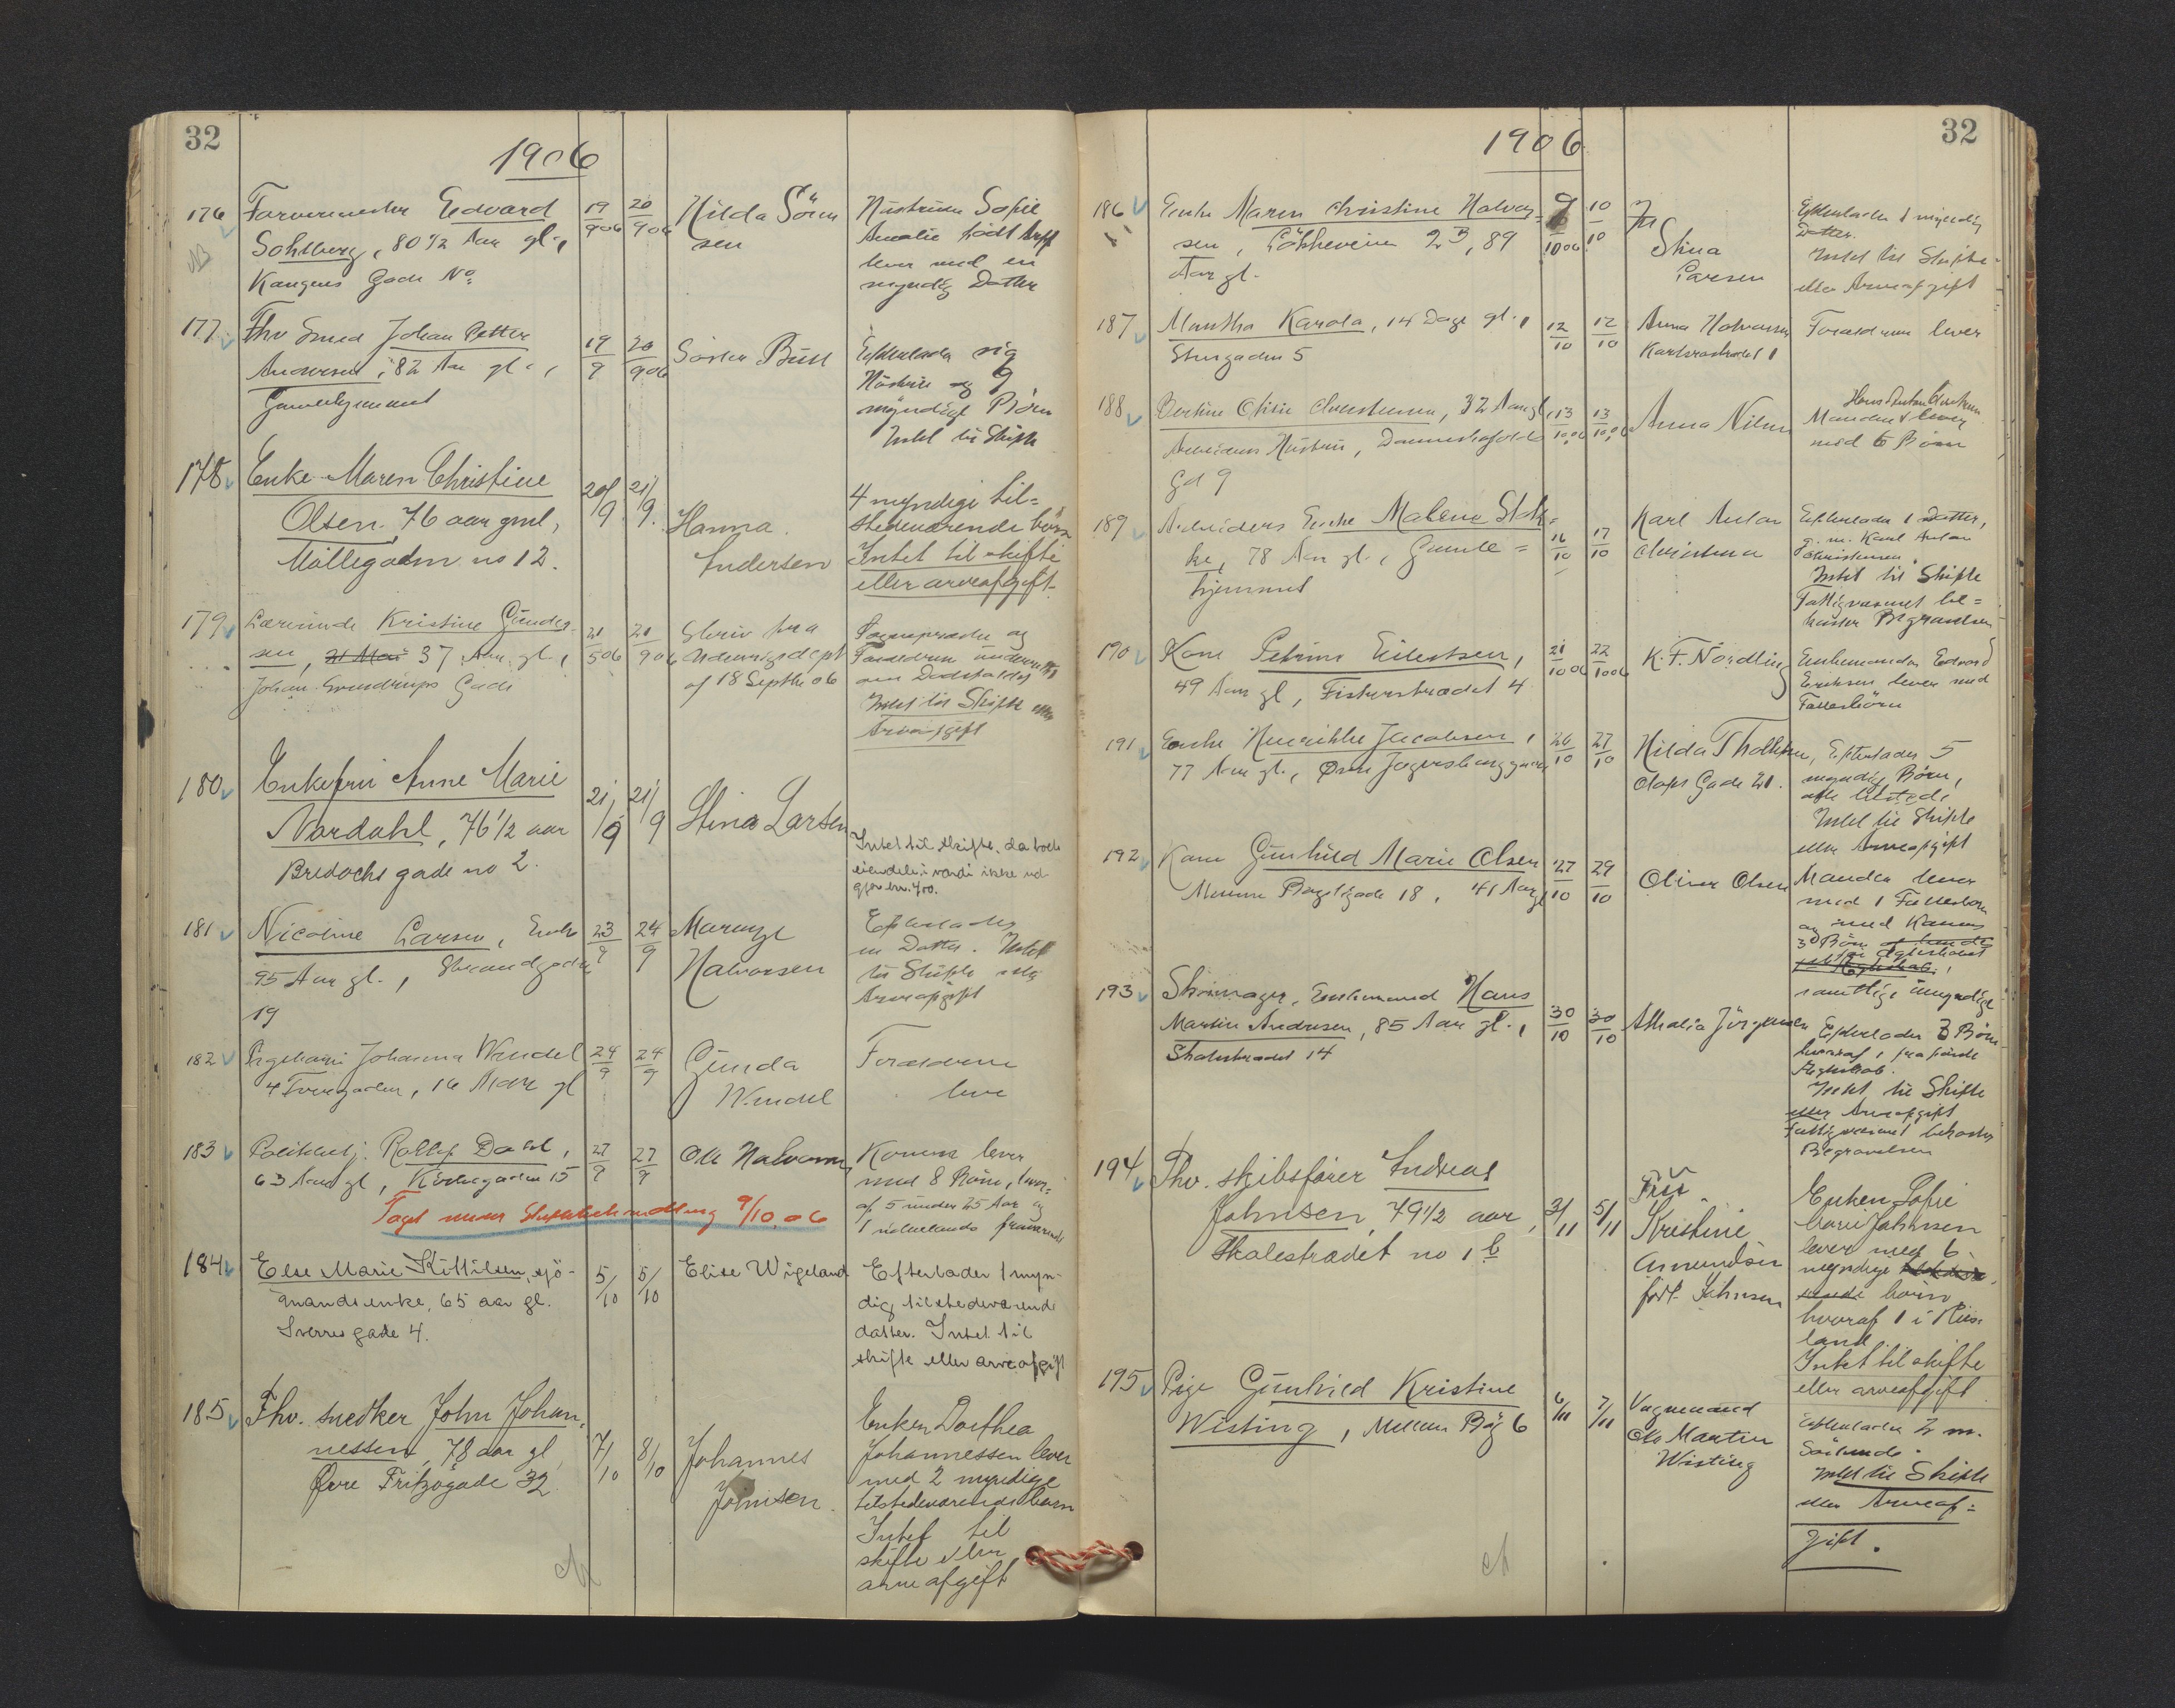 32
1906
176
Farvermester Edvard
Sohlberg, 80 1/2 Aar gl.,
Kongens Gade No
19/9 06
20/9 06
Hilda Sören
sen
Hüstrüen Sofie
Amalie født
lever med en
myndig Datter
177
Fhv Smed Johan Petter
Andersen, 82 Aar gl.,
Gamlehjemmet
19/9
20/9 06
Søster Büll
Efterlader sig
Hüstrü og 9
myndige Börn
Intet til Skifte
178
Enke Maren Christine
Olsen, 76 aar gml,
Möllegaden no 12.
20/9
21/9.
Hanna
Andersen
4 myndige til-
stedeværende børn
Intet til skifte
eller arveafgift
179
Lærerinde Kristine Günder
sen, 21 Mai 37 Aar gl.,
Johan Sverdrups Gade
21/5 06
21/9 06
Skriv fra
Udenrigsdept
af 18 Septbr 06
Sogneprædn og
Forældrene ünderrettet
om Dødsfaldet
Intet til Skifte eller
Arveafgift
180
Enkefru Anne Marie
Nordahl, 76 1/2 aar
Bredochs gade no 2.
21/9
21/9
Stina Larsen
Intet til skifte, da boets
eiendele i værdi ikke ud-
gjør kr. 400.
181
Nicoline Larsen, Enke
95 Aar gl., Strandgaden
19
23/9
24/9
Marenze
Halvorsen
Efterlader
en Datter. Intet
til Skifte eller
Arveafgift
182
Johanna Wendel
4 Tvergaden, 16 Aar gl
24/9
24/9
Günda
Wendel
Forældrene
leve
183
Politibetj. Rollef Dahl,
63 Aar gl, Kirkegaden 15
27/9
27/9
Ole Halvorsen
Konen lever
med 8 Børn, hvor-
af 5 ünder 25 Aar og
1 üdenlands
Taget under Skiftebehandling 9/10.06
184
Else Marie Kittilsen, sjö-
mandsenke, 65 aar gl.
Sverresgade 4.
5/10
5/10
Elise Wigeland
Efterlader 1 myn-
dig, tilstedeværende
datter. Intet til
skifte eller arveafgift
185
Fhv. snedker John Johan-
nessen, 78 aar gl,
Øvre Fritzøgade 32
7/10
8/10
Johannes
Johnsen.
Enken Dorthea
Johannessen lever
med 2 myndige
tilstedeværende børn
Intet til
skifte eller
arveafgift
32
1906
186
Enke Maren Christine Halvor-
sen, Løkkeveien 23, 89
Aar gl.
9/10 06
10/10
Stina
Larsen
Efterlader 1 myndig
Datter.
Intet til Skifte
eller Arveafgift
187
Mantha Karola, 14 Dage gl.,
Storgaden 5
12/10
12/10
Anna Halvorsen
Forældrene lever
188
Bertine Oline Christensen, 32 Aar gl,
Arbeiders Hüstrü, Danneskjolds
Gd 9
13/10 06
13/10 06
Anna Nilsen
Manden lever
med 6 Børn
189
Arbeiders Enke Malene Stok-
ke, 78 Aar gl., Gamle-
hjemmet
16/10
17/10
Karl Anton
Christensen
Efterlader 1 Datter,
g. m. Karl Anton
Christensen.
Intet til Skifte
Fattigvæsenet be-
koster Begravelsen
190
Kone Petrine Eilertsen,
49 Aar gl, Fiskerstrædet 4
21/10 06
22/10 06
K. F. Nördling
Enkemanden Edvard
Eriksen lever med
Fællesbörn
191
Enke Henrikke Jacobsen,
77 Aar gl., Øvre Jegersborggaden
26/10
27/10
Hilda Thollefsen,
Olafs Gade 21.
Efterlader 5
myndige Börn,
alle tilstede
Intet til Skifte
eller Arveafgift
192
Kone Günhild Marie Olsen
Mellem Bøgeligade 18, 41 Aar gl
27/10
29/10
Oliver Olsen
Manden lever
med 1 Fællesbarn
og med Konens
3 Børn
Ægteskab,
samtlige ümyndige
193
Skomager, Enkemand Hans
Martin Andresen, 85 Aar gl.,
Skolestrædet 14
30/10
30/10
Athalia Jörgensen
Efterlader 3 Börn
hvoraf 1 fra første
Ægteskab.
Intet til Skifte
eller Arveafgift
Fattigvæsenet bekoster
Begravelsen
194
Fhv. skibsfører Andreas
Johnsen, 79 1/2 aar,
Skolestrædet no 1 b
3/11
5/11
Früe
Kristine
Amundsen
født Johnsen
Enken Sofie
Marie Johnsen
lever med 6
myndige
børn,
hvoraf 1 i Rus-
land
Intet til skifte
eller arveafgift
195
Pige Günhild Kristine
Wisting, Mellem Bøg 6
6/11
7/11
Vognmand
Ole Martin
Wisting
Efterlader 2 m.
Søskende.
Intet til Skifte
eller Arveaf-
gift.